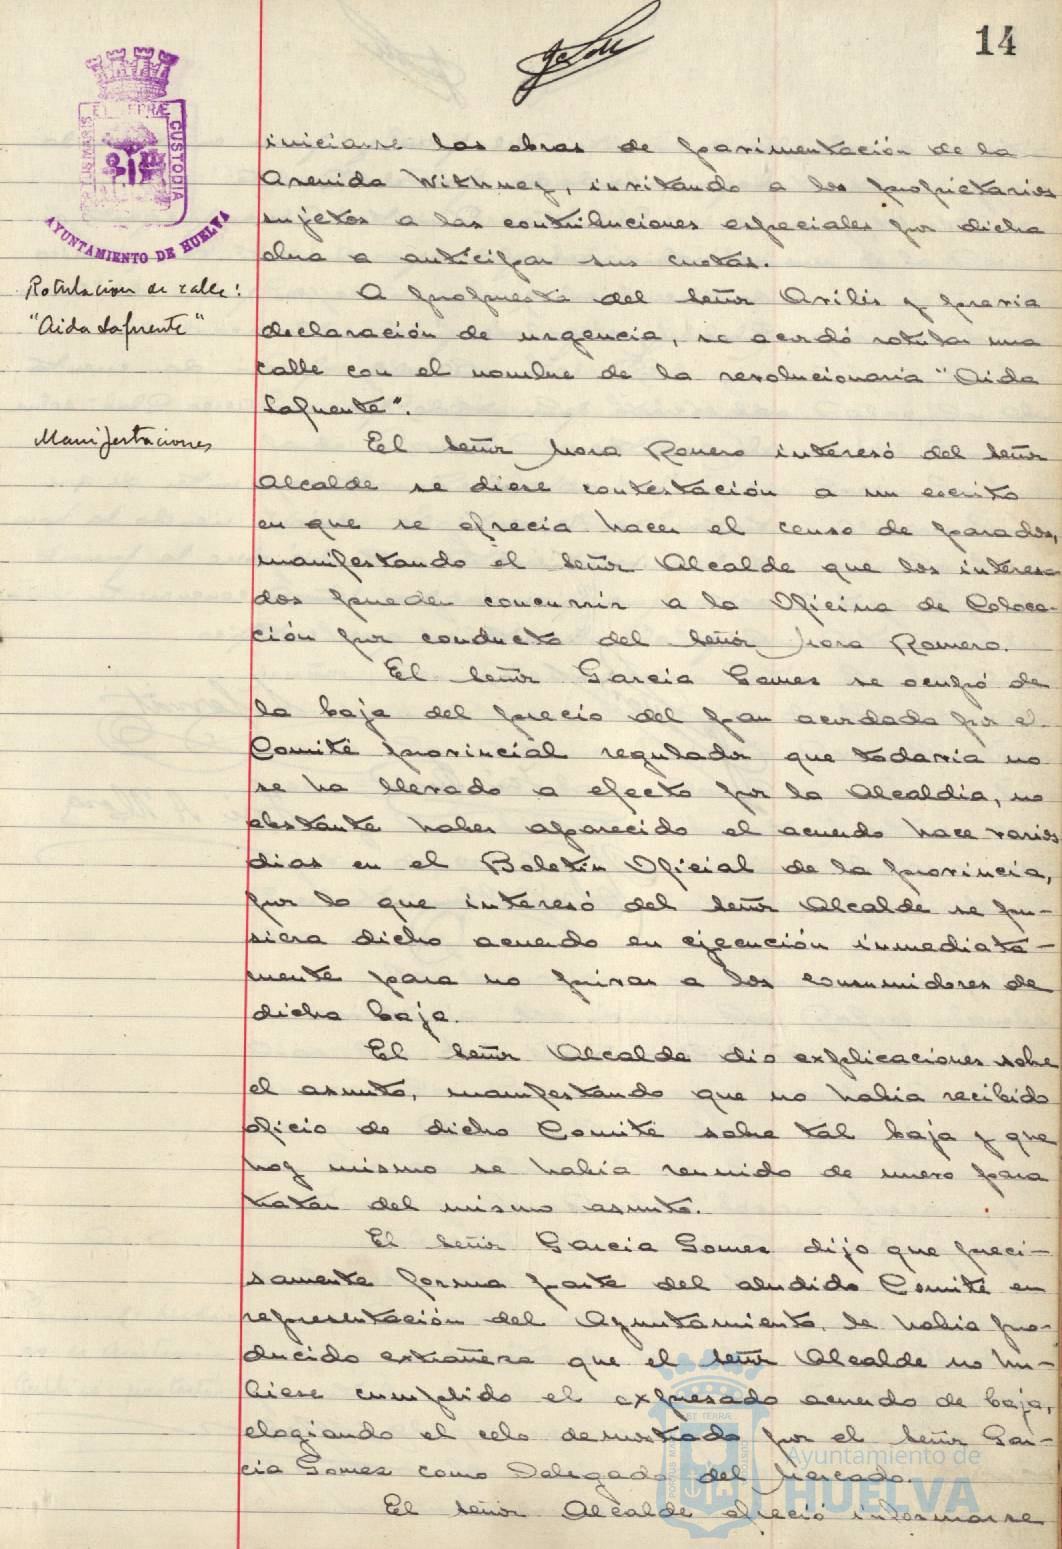 14
PORTUS MARIS ET TERRÆ CUSTODIA
AYUNTAMIENTO DE HUELVA
iniciarse las obras de pavimentación de la
Avenida Withney, invitando a los propietarios
sujetos a las contribuciones especiales por dicha
obra a anticipar sus cuotas.
Rotulacion de calle:
"Aida Lafuente"
A propuesta del Señor Avilés y previa
declaración de urgencia, se acordó rotular una
calle con el nombre de la revolucionaria "Aida
Lafuente".
Manifestaciones
El Señor Mora Romero interesó del Señor
Alcalde se diese contestación a un escrito
en que se ofrecia hacer el censo de parados,
manifestando el Señor Alcalde que los interesa
dos pueden concurrir a la Oficina de Coloca-
ción por conducto del Señor Mora Romero.
El Señor Garcia Gomez se ocupó de
la baja del precio del pan acordada por el
Comité provincial regulador que todavia no
se ha llevado a efecto por la Alcaldia, no
obstante haber aparecido el acuerdo hace varios
dias en el Boletin Oficial de la provincia,
por lo que interesó del Señor Alcalde se pu-
siera dicho acuerdo en ejecución inmediata-
mente para no privar a los consumidores de
dicha baja.
El Señor Alcalde dio explicaciones sobre
el asunto, manifestando que no habia recibido
oficio de dicho Comité sobre tal baja y que
hoy mismo se habia reunido de nuevo para
tratar del mismo asunto.
El Señor Garcia Gomez dijo que preci-
samente forma parte del aludido Comité en
representación del Ayuntamiento, le habia pro-
ducido extrañeza que el Señor Alcalde no hu-
biese cumplido el expresado acuerdo de baja,
elogiando el celo demostrado por el Señor Gar-
cia Gomez como Delegado del Mercado.
El Señor Alcalde ofreció informarse
Ayuntamiento de
HUELVA